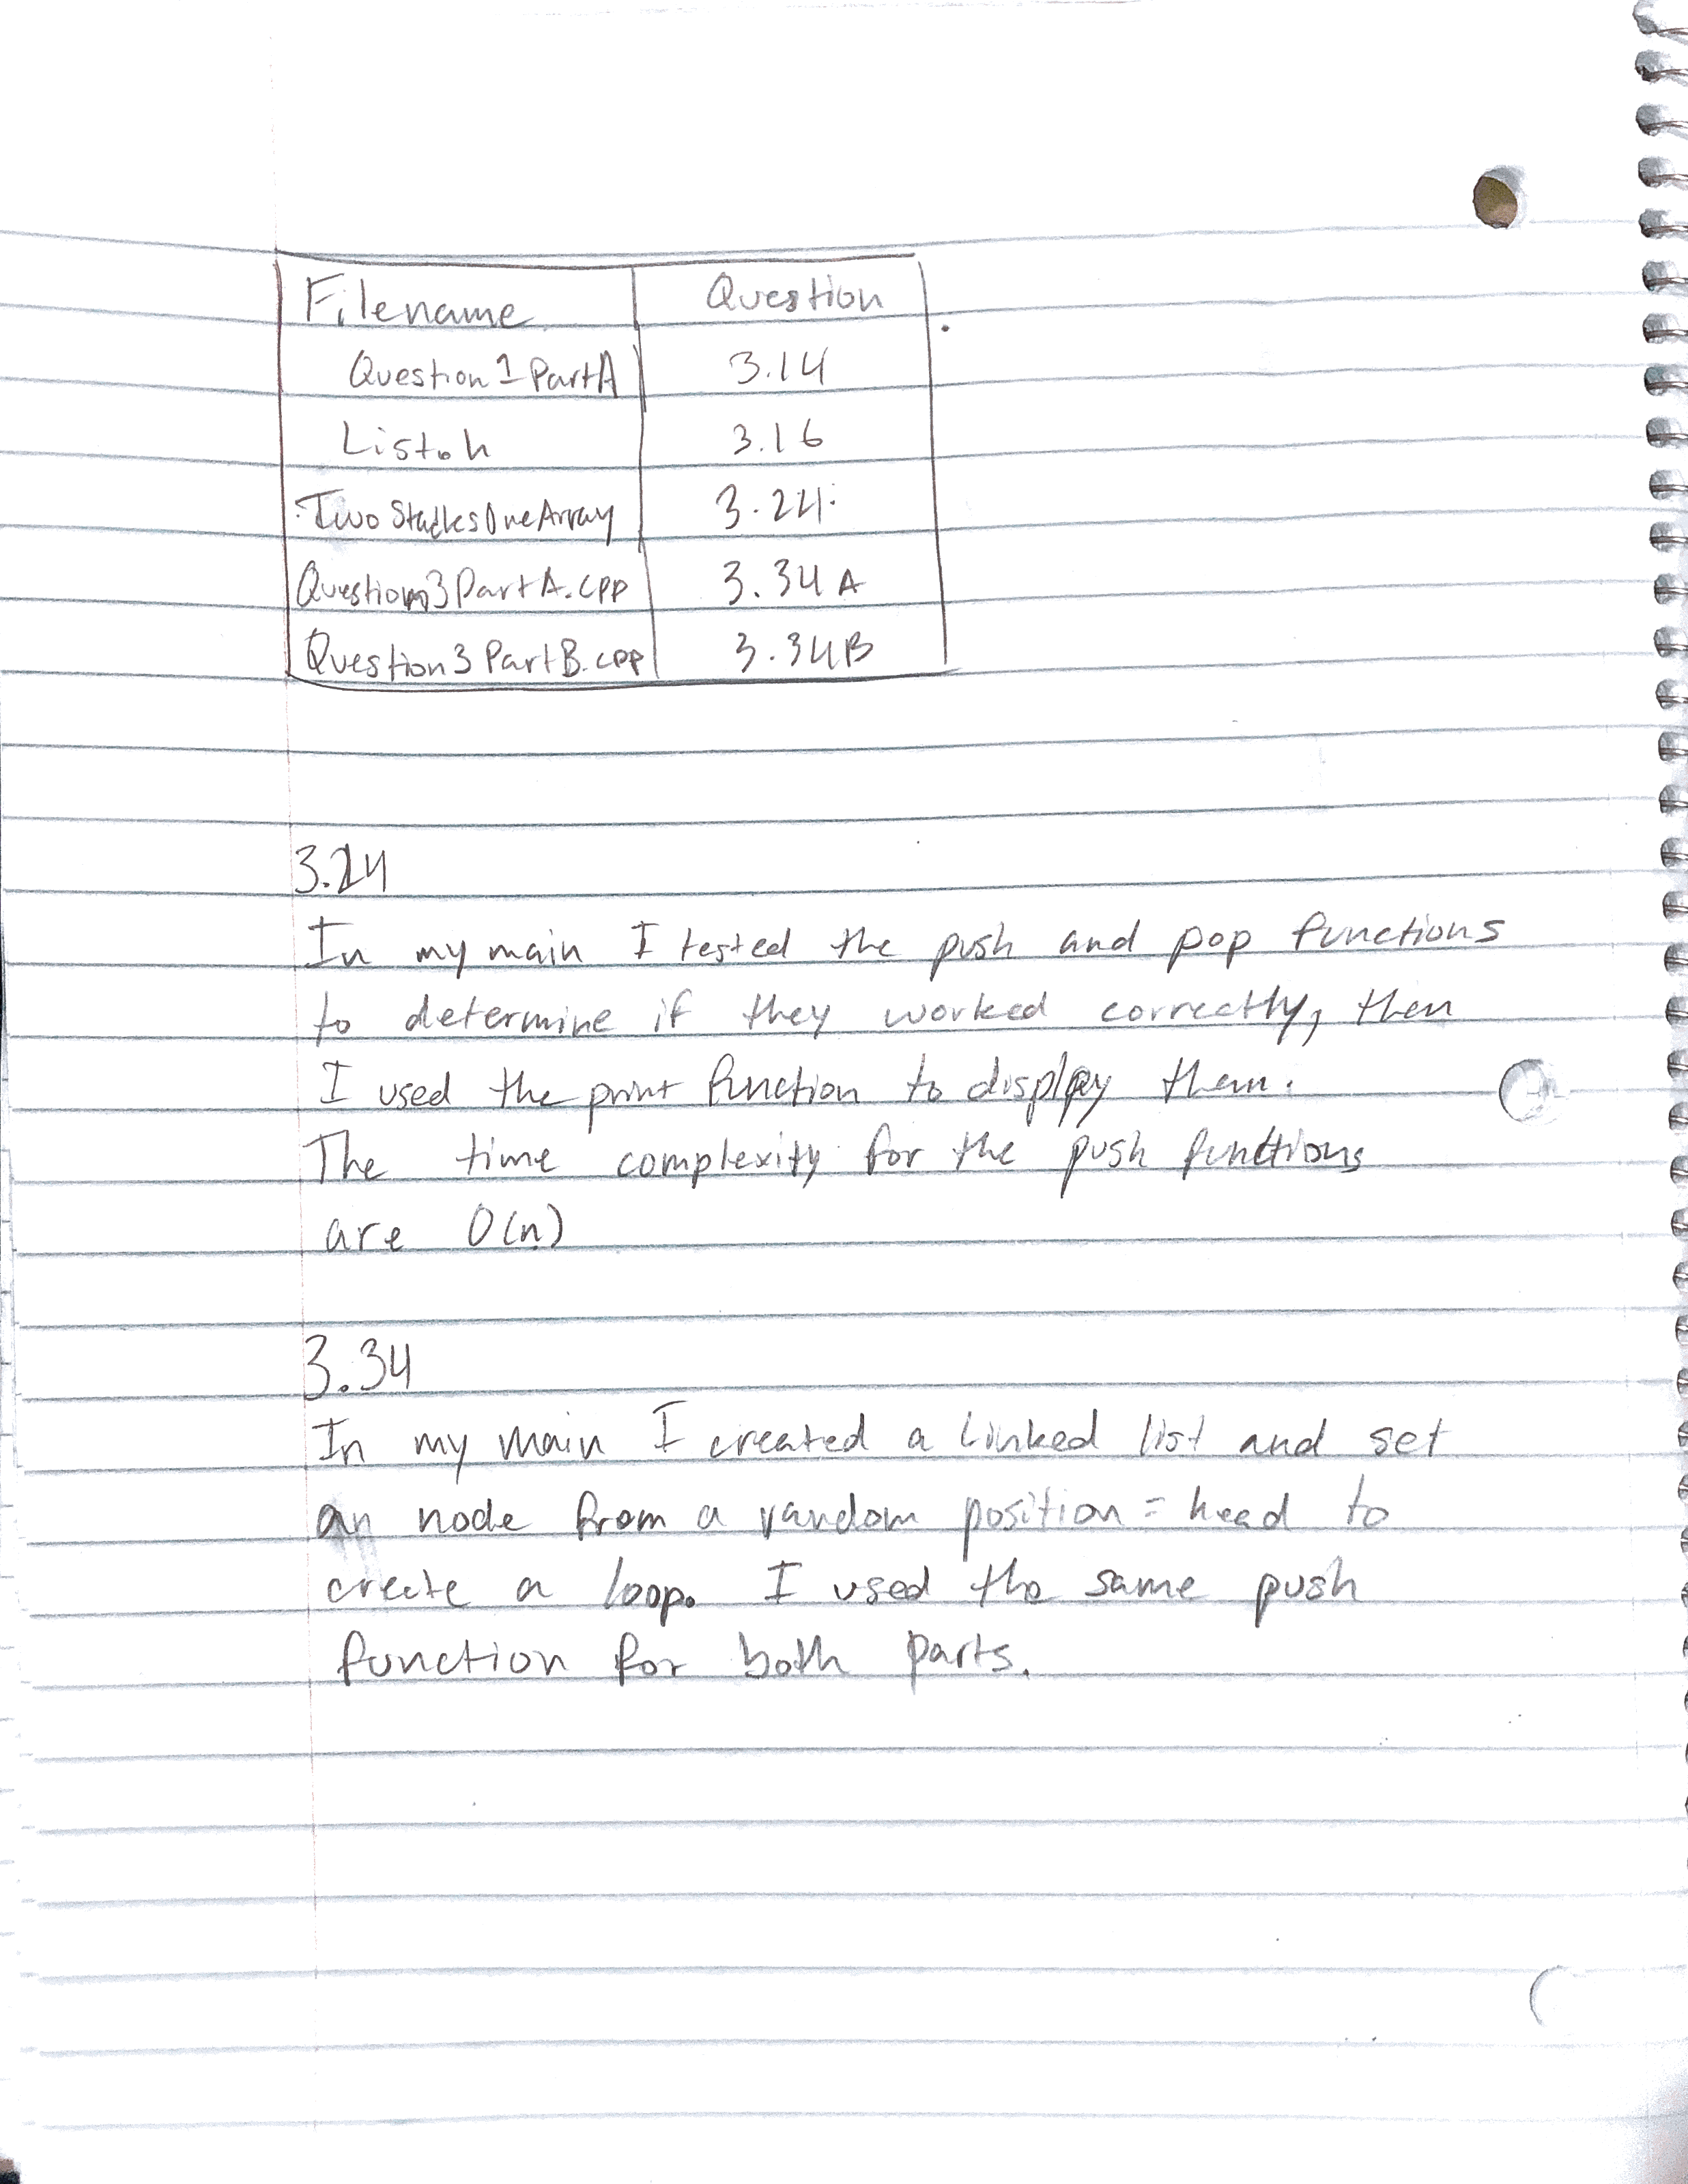 Filename Question
Question1PartA 3.14
List.h 3.16
TwoStacksOneArray 3.24
Question3PartA.cpp 3.34A
Question3PartB.cpp 3.34B
3.24
In my main I tested the push and pop functions
to determine if they worked correctly, then
I used the print function to display them.
The time complexity for the push functions
are O(n)
3.34
In my main I created a linked list and set
an node from a random position = head to
create a loop. I used the same push
function for both parts.